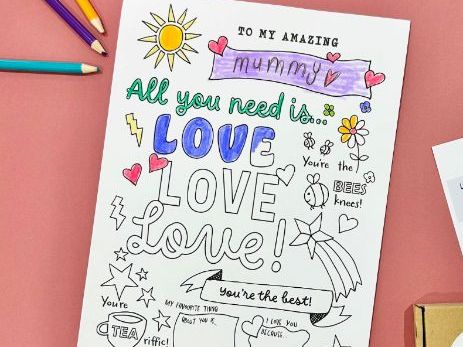 TO MY AMAZING
mummy
All you need is...
LOVE
LOVE
Love!
You're the
BEES
knees!
You're the best!
You're
TEA
riffic!
MY FAVOURITE THING
ABOUT YOU IS
I LOVE YOU
BECAUSE